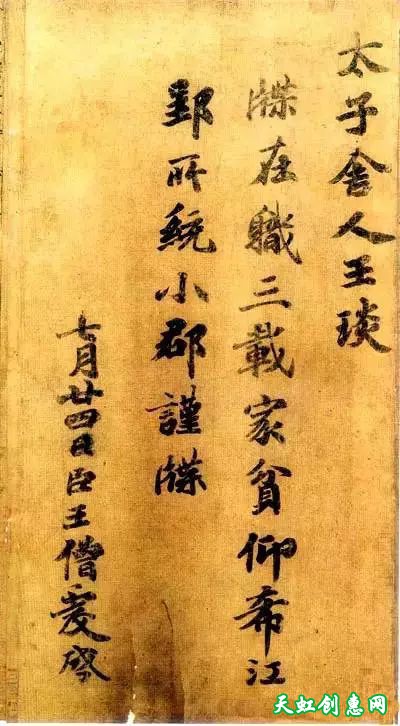 太子舍人王琰
牒在職三載家貧仰希江
郢所統小郡謹牒
七月廿四日臣王僧虔啓
天虹创惠网